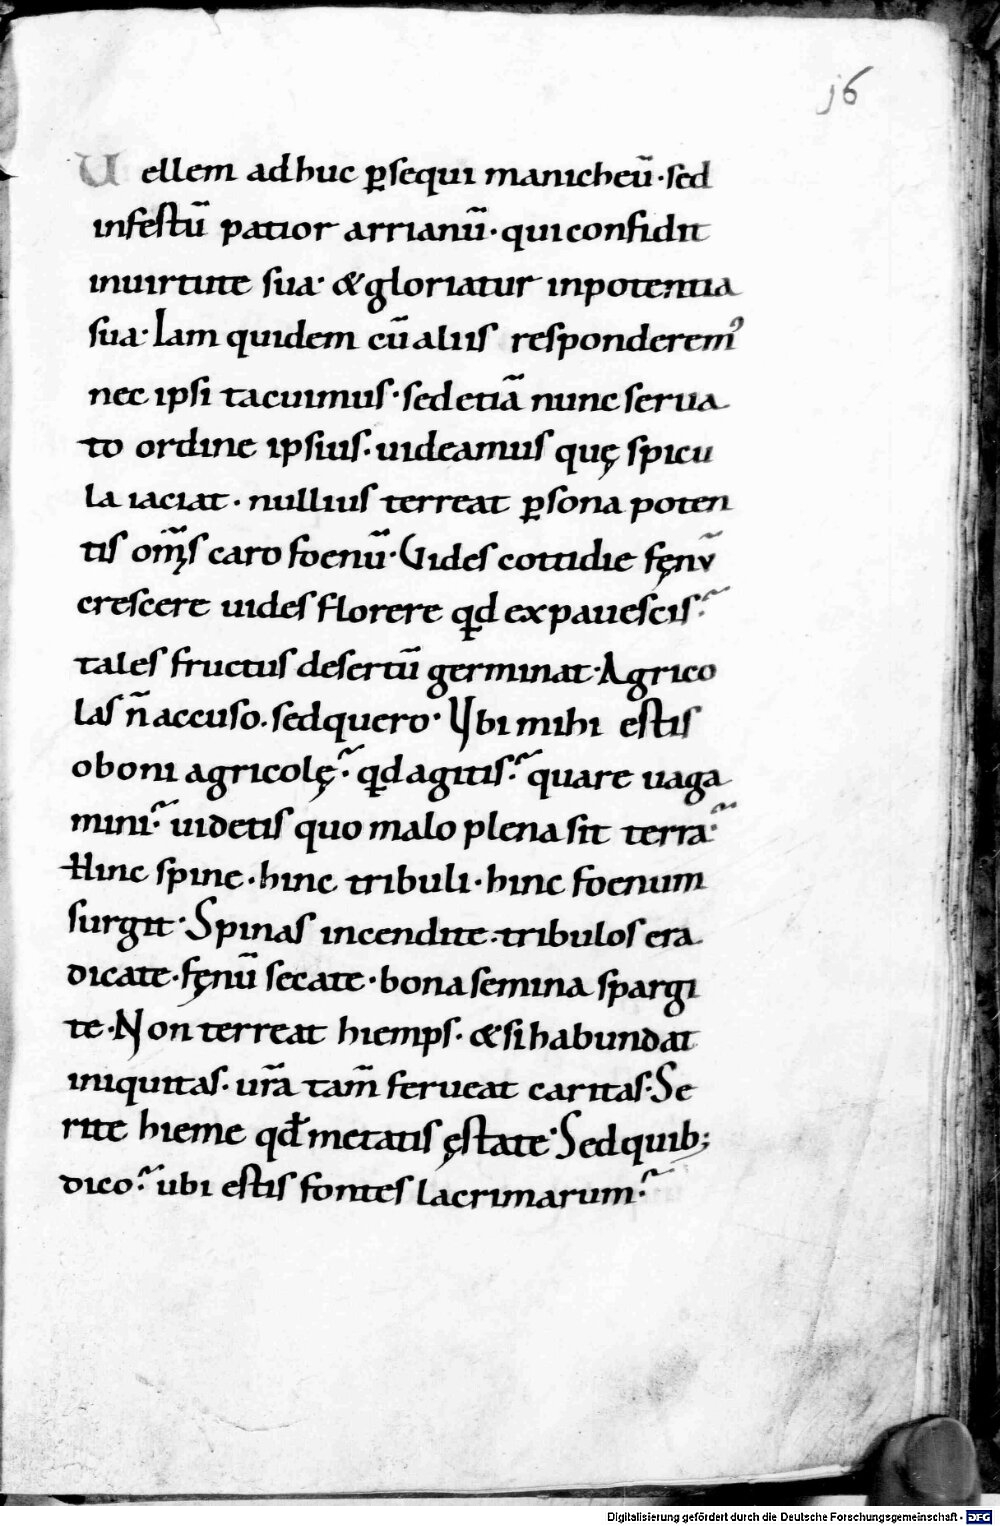 16
Uellem adhuc ꝑsequi manicheū· sed
infestū patior arrianū· qui confidit
inuirtute sua· & gloriatur inpotentia
sua· Iam quidem cū aliis responderemꝰ
nec ipsi tacuimus· sed etiā nunc serua
to ordine ipsius· uideamus quę spicu
la iaciat· nullius terreat ꝑsona poten
tis om̄s caro foenū· Uides cottidie fęnū
crescere uides florere qd expauescis·
tales fructus desertū germinat· Agrico
las n̄ accuso· sed quero· Ubi mihi estis
oboni agricolę· qd agitis· quare uaga
mini· uidetis quo malo plena sit terra·
Hinc spine· hinc tribuli· hinc foenum
surgit· Spinas incendite· tribulos era
dicate· fęnū secate· bona semina spargi
te· Non terreat hiemps· & si habundat
iniquitas· ur̄a tam̄ ferueat caritas· Se
rite hieme qđ metatis ęstate· Sed quib;
dico· ubi estis fontes lacrimarum·
Digitalisierung gefördert durch die Deutsche Forschungsgemeinschaft - DFG